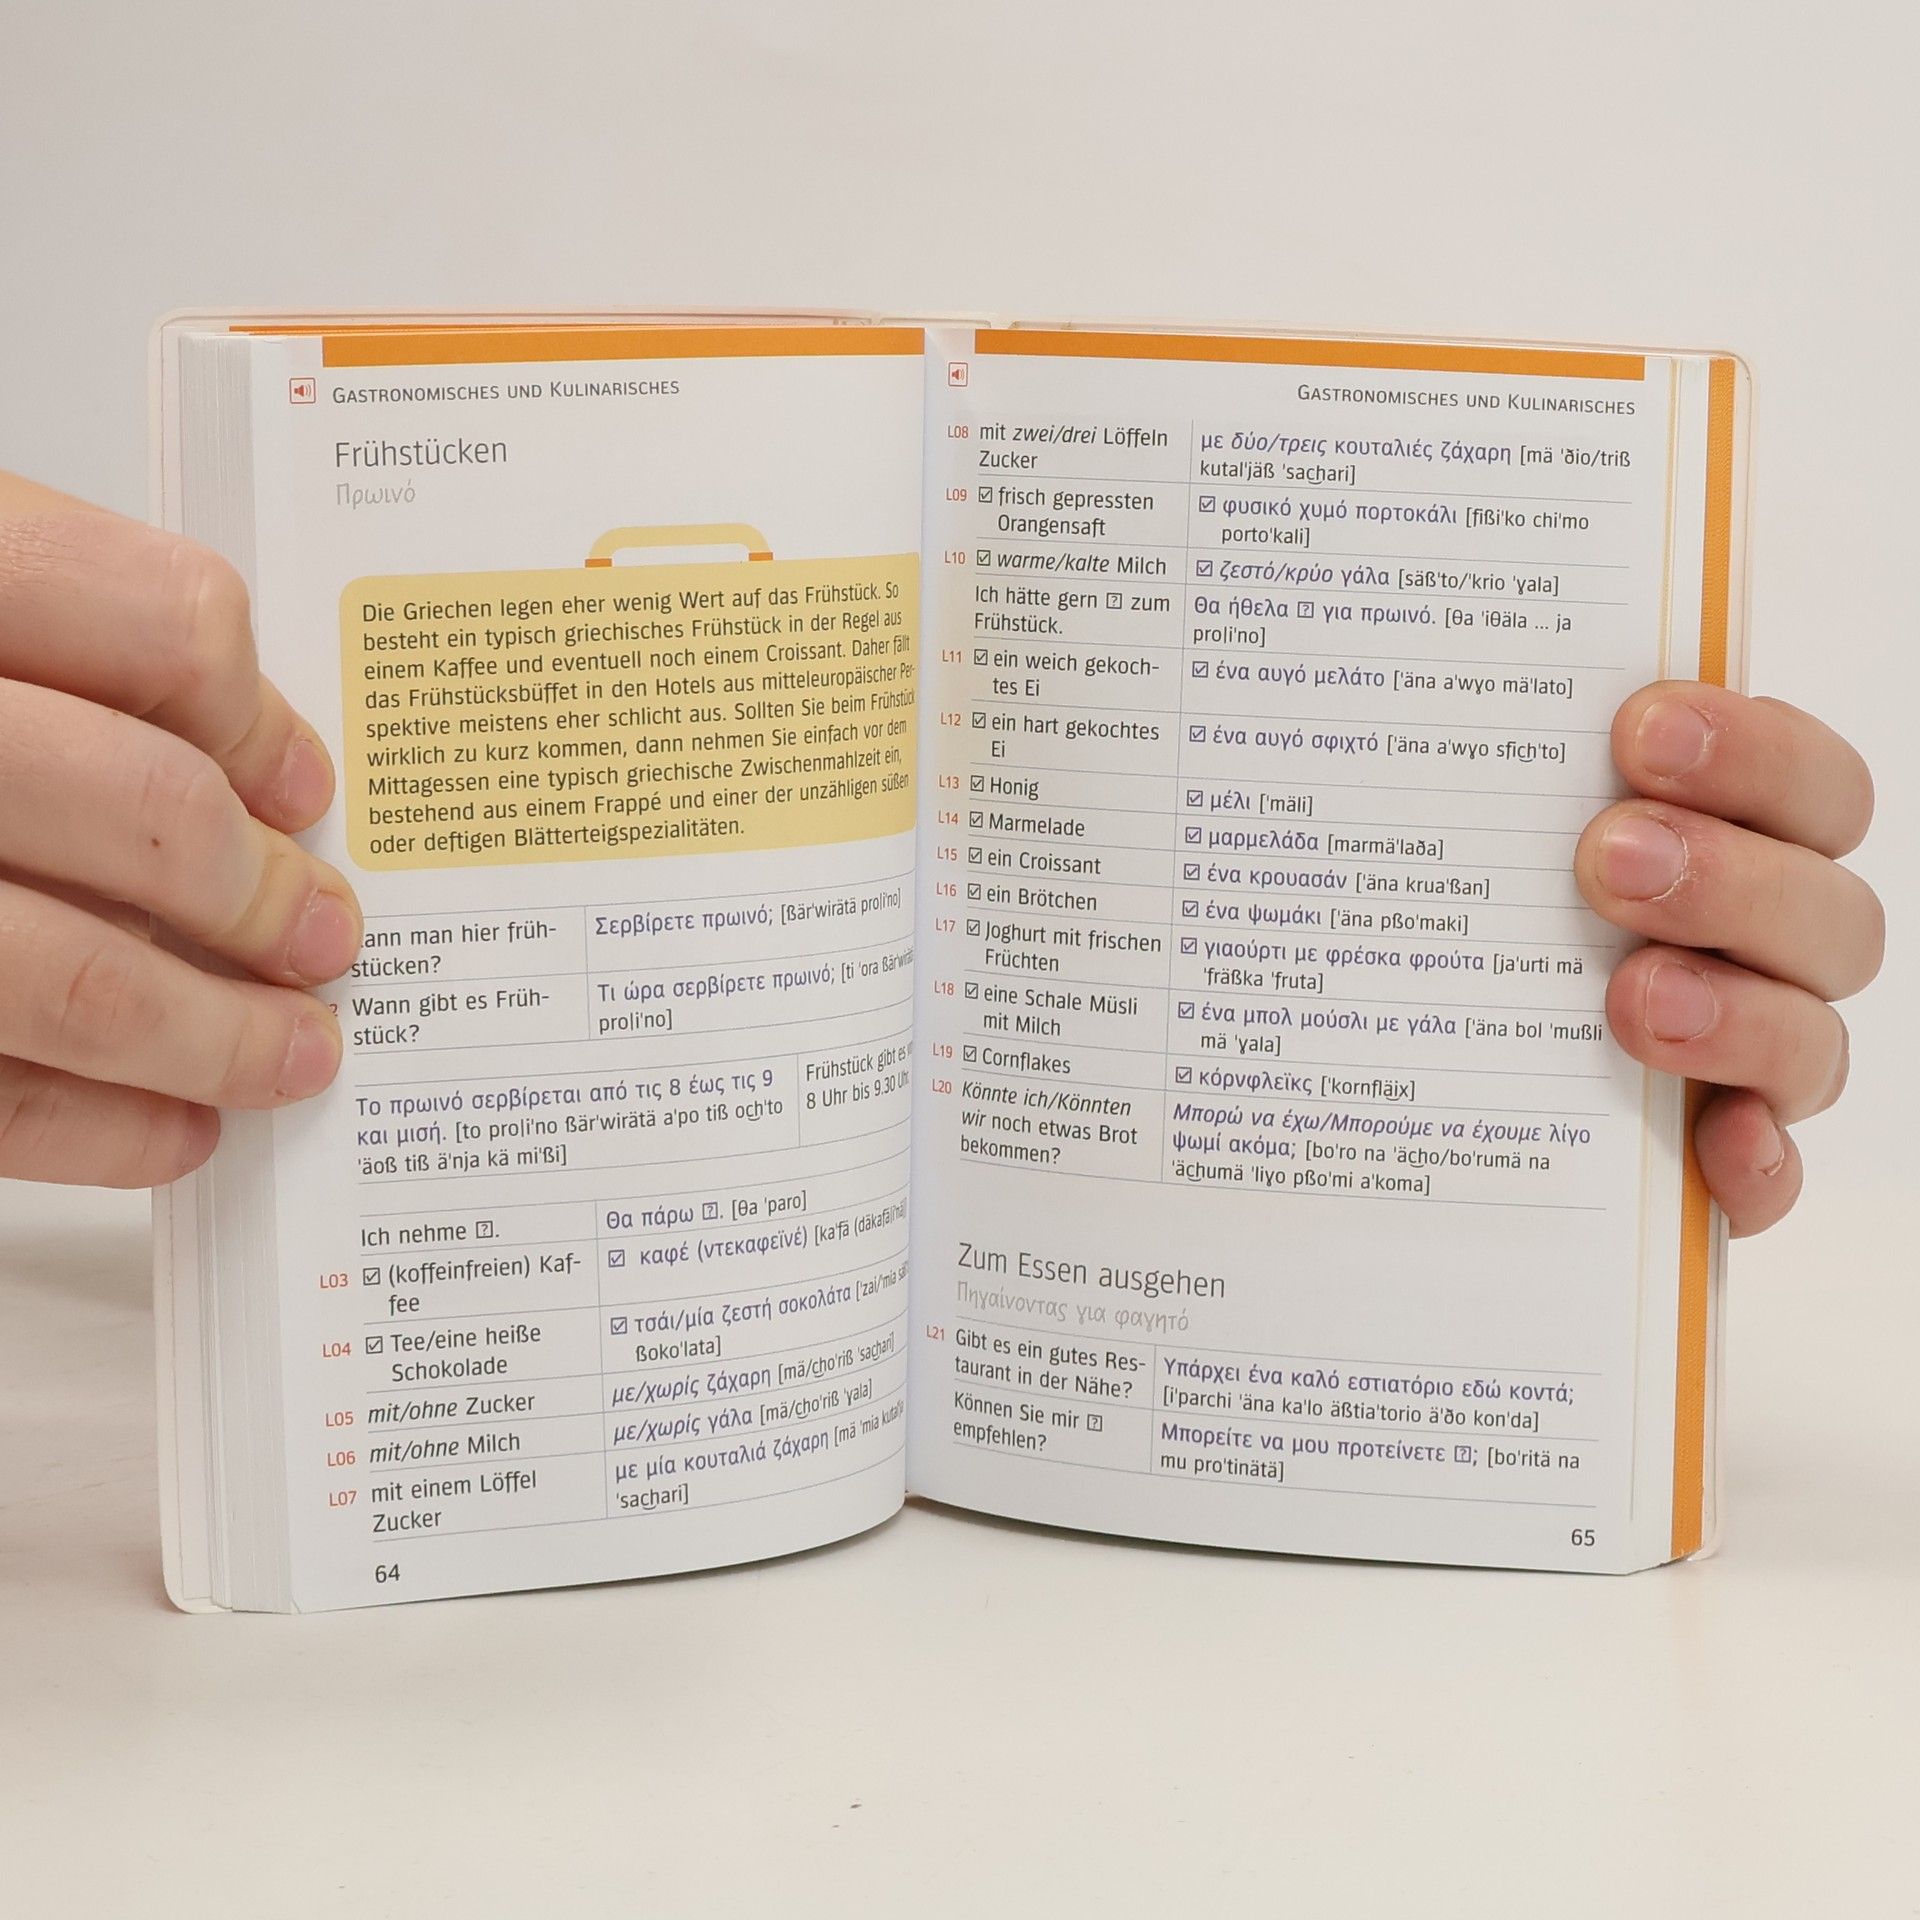 Gastronomisches und Kulinarisches
Frühstücken
Πρωινό
Die Griechen legen eher wenig Wert auf das Frühstück. So
besteht ein typisch griechisches Frühstück in der Regel aus
einem Kaffee und eventuell noch einem Croissant. Daher fällt
das Frühstücksbüffet in den Hotels aus mitteleuropäischer Per-
spektive meistens eher schlicht aus. Sollten Sie beim Frühstück
wirklich zu kurz kommen, dann nehmen Sie einfach vor dem
Mittagessen eine typisch griechische Zwischenmahlzeit ein,
bestehend aus einem Frappé und einer der unzähligen süßen
oder deftigen Blätterteigspezialitäten.
man hier früh- Σερβίρετε πρωινό; [ßär'wirätä proḷi'no]
stücken?
Wann gibt es Früh- Τι ώρα σερβίρετε πρωινό; [ti 'ora
stück? proḷi'no]
Το πρωινό σερβίρεται από τις 8 έως τις 9 Frühstück gibt es
και μισή. [to proḷi'no ßär'wirätä a'po tiß oc͟h'to 8 Uhr bis 9.30 Uhr.
'äoß tiß ä'nja kä mi'ßi]
Ich nehme ?. Θα πάρω ?. [θa 'paro]
L03 ☑ (koffeinfreien) Kaf- ☑ καφέ (ντεκαφεϊνέ) [ka'fä
fee
L04 ☑ Tee/eine heiße ☑ τσάι/μία ζεστή σοκολάτα ['zai/'mia
Schokolade ßoko'lata]
L05 mit/ohne Zucker με/χωρίς ζάχαρη [mä/c͟ho'riß 'sac͟hari]
L06 mit/ohne Milch με/χωρίς γάλα [mä/c͟ho'riß 'ɣala]
L07 mit einem Löffel με μία κουταλιά ζάχαρη [mä 'mia
Zucker 'sac͟hari]
64
Gastronomisches und Kulinarisches
L08 mit zwei/drei Löffeln με δύο/τρεις κουταλιές ζάχαρη [mä 'ðio/triß
Zucker kutal'jäß 'sac͟hari]
L09 ☑ frisch gepressten ☑ φυσικό χυμό πορτοκάλι [fißi'ko chi'mo
Orangensaft porto'kali]
L10 ☑ warme/kalte Milch ☑ ζεστό/κρύο γάλα [säß'to/'krio 'ɣala]
Ich hätte gern ? zum Θα ήθελα ? για πρωινό. [θa 'iθäla ... ja
Frühstück. proḷi'no]
L11 ☑ ein weich gekoch- ☑ ένα αυγό μελάτο ['äna a'wɣo mä'lato]
tes Ei
L12 ☑ ein hart gekochtes ☑ ένα αυγό σφιχτό ['äna a'wɣo sfic͟h'to]
Ei
L13 ☑ Honig ☑ μέλι ['mäli]
L14 ☑ Marmelade ☑ μαρμελάδα [marmä'laða]
L15 ☑ ein Croissant ☑ ένα κρουασάν ['äna krua'ßan]
L16 ☑ ein Brötchen ☑ ένα ψωμάκι ['äna pßo'maki]
L17 ☑ Joghurt mit frischen ☑ γιαούρτι με φρέσκα φρούτα [ja'urti mä
Früchten 'fräßka 'fruta]
L18 ☑ eine Schale Müsli ☑ ένα μπολ μούσλι με γάλα ['äna bol 'mußli
mit Milch mä 'ɣala]
L19 ☑ Cornflakes ☑ κόρνφλεϊκς ['kornflä͟ix]
L20 Könnte ich/Könnten Μπορώ να έχω/Μπορούμε να έχουμε λίγο
wir noch etwas Brot ψωμί ακόμα; [bo'ro na 'äc͟ho/bo'rumä na
bekommen? 'äc͟humä 'liɣo pßo'mi a'koma]
Zum Essen ausgehen
Πηγαίνοντας για φαγητό
L21 Gibt es ein gutes Res- Υπάρχει ένα καλό εστιατόριο εδώ κοντά;
taurant in der Nähe? [i'parchi 'äna ka'lo äßtia'torio ä'ðo kon'da]
Können Sie mir ? Μπορείτε να μου προτείνετε ?; [bo'ritä na
empfehlen? mu pro'tinätä]
65